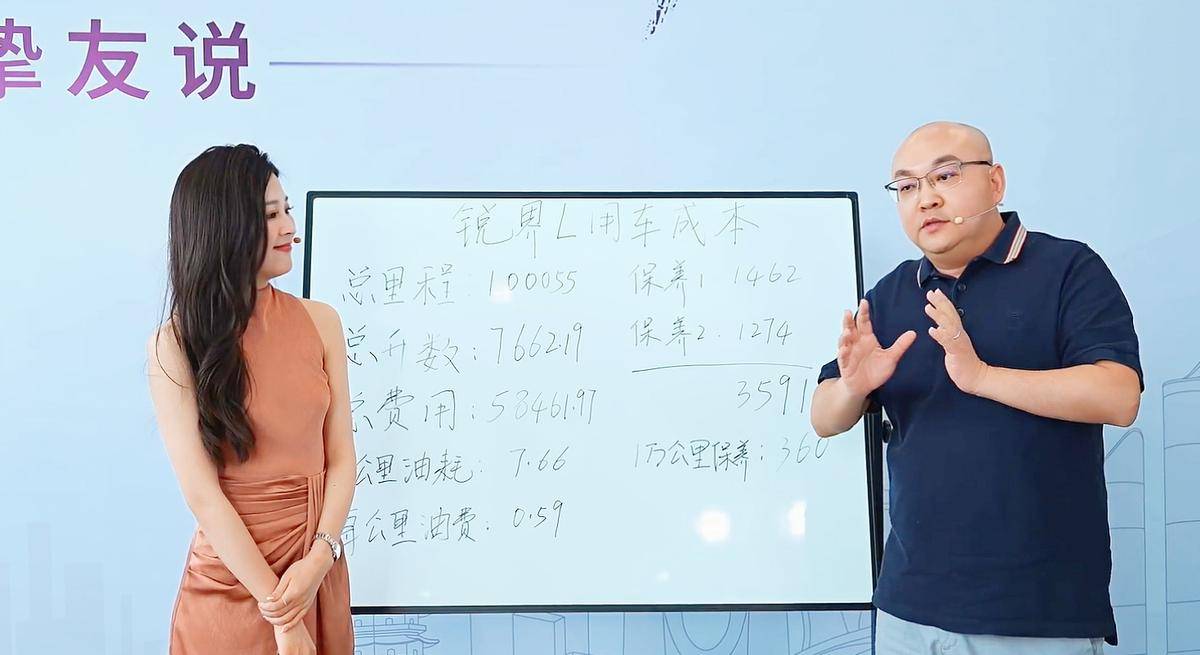 友说
锐界L用车成本
总里程:100055
总升数:7662.19
费用:58461.97
公里油耗:7.66
公里油费:0.59
保养1 1462
保养2.1274
3591
1万公里保养:360